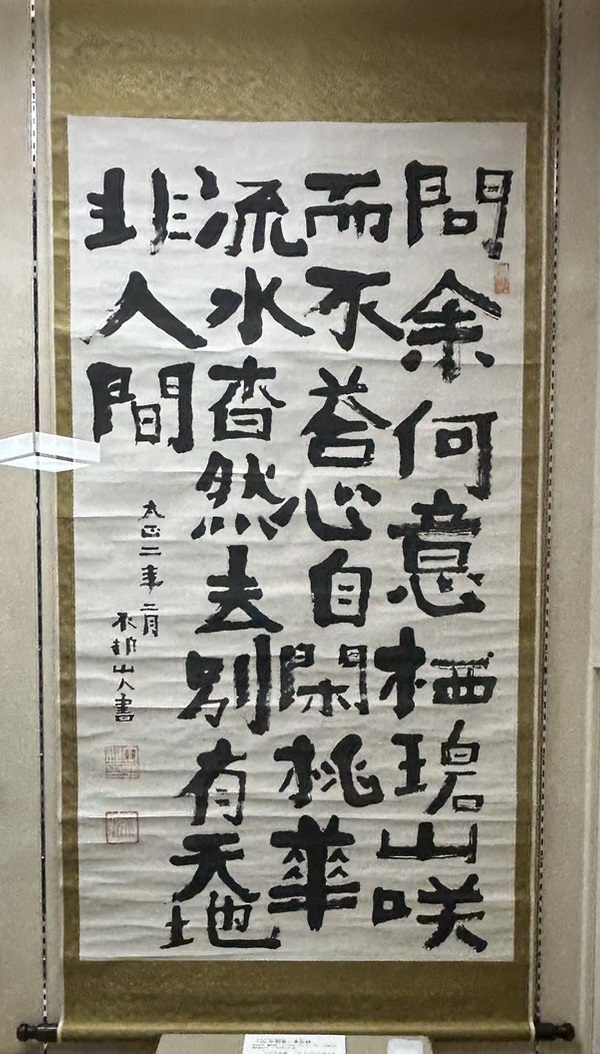 問余何意栖碧山咲
而不荅心自閑桃華
流水杳然去別有天地
非人間
大正二年二月
不折山人書